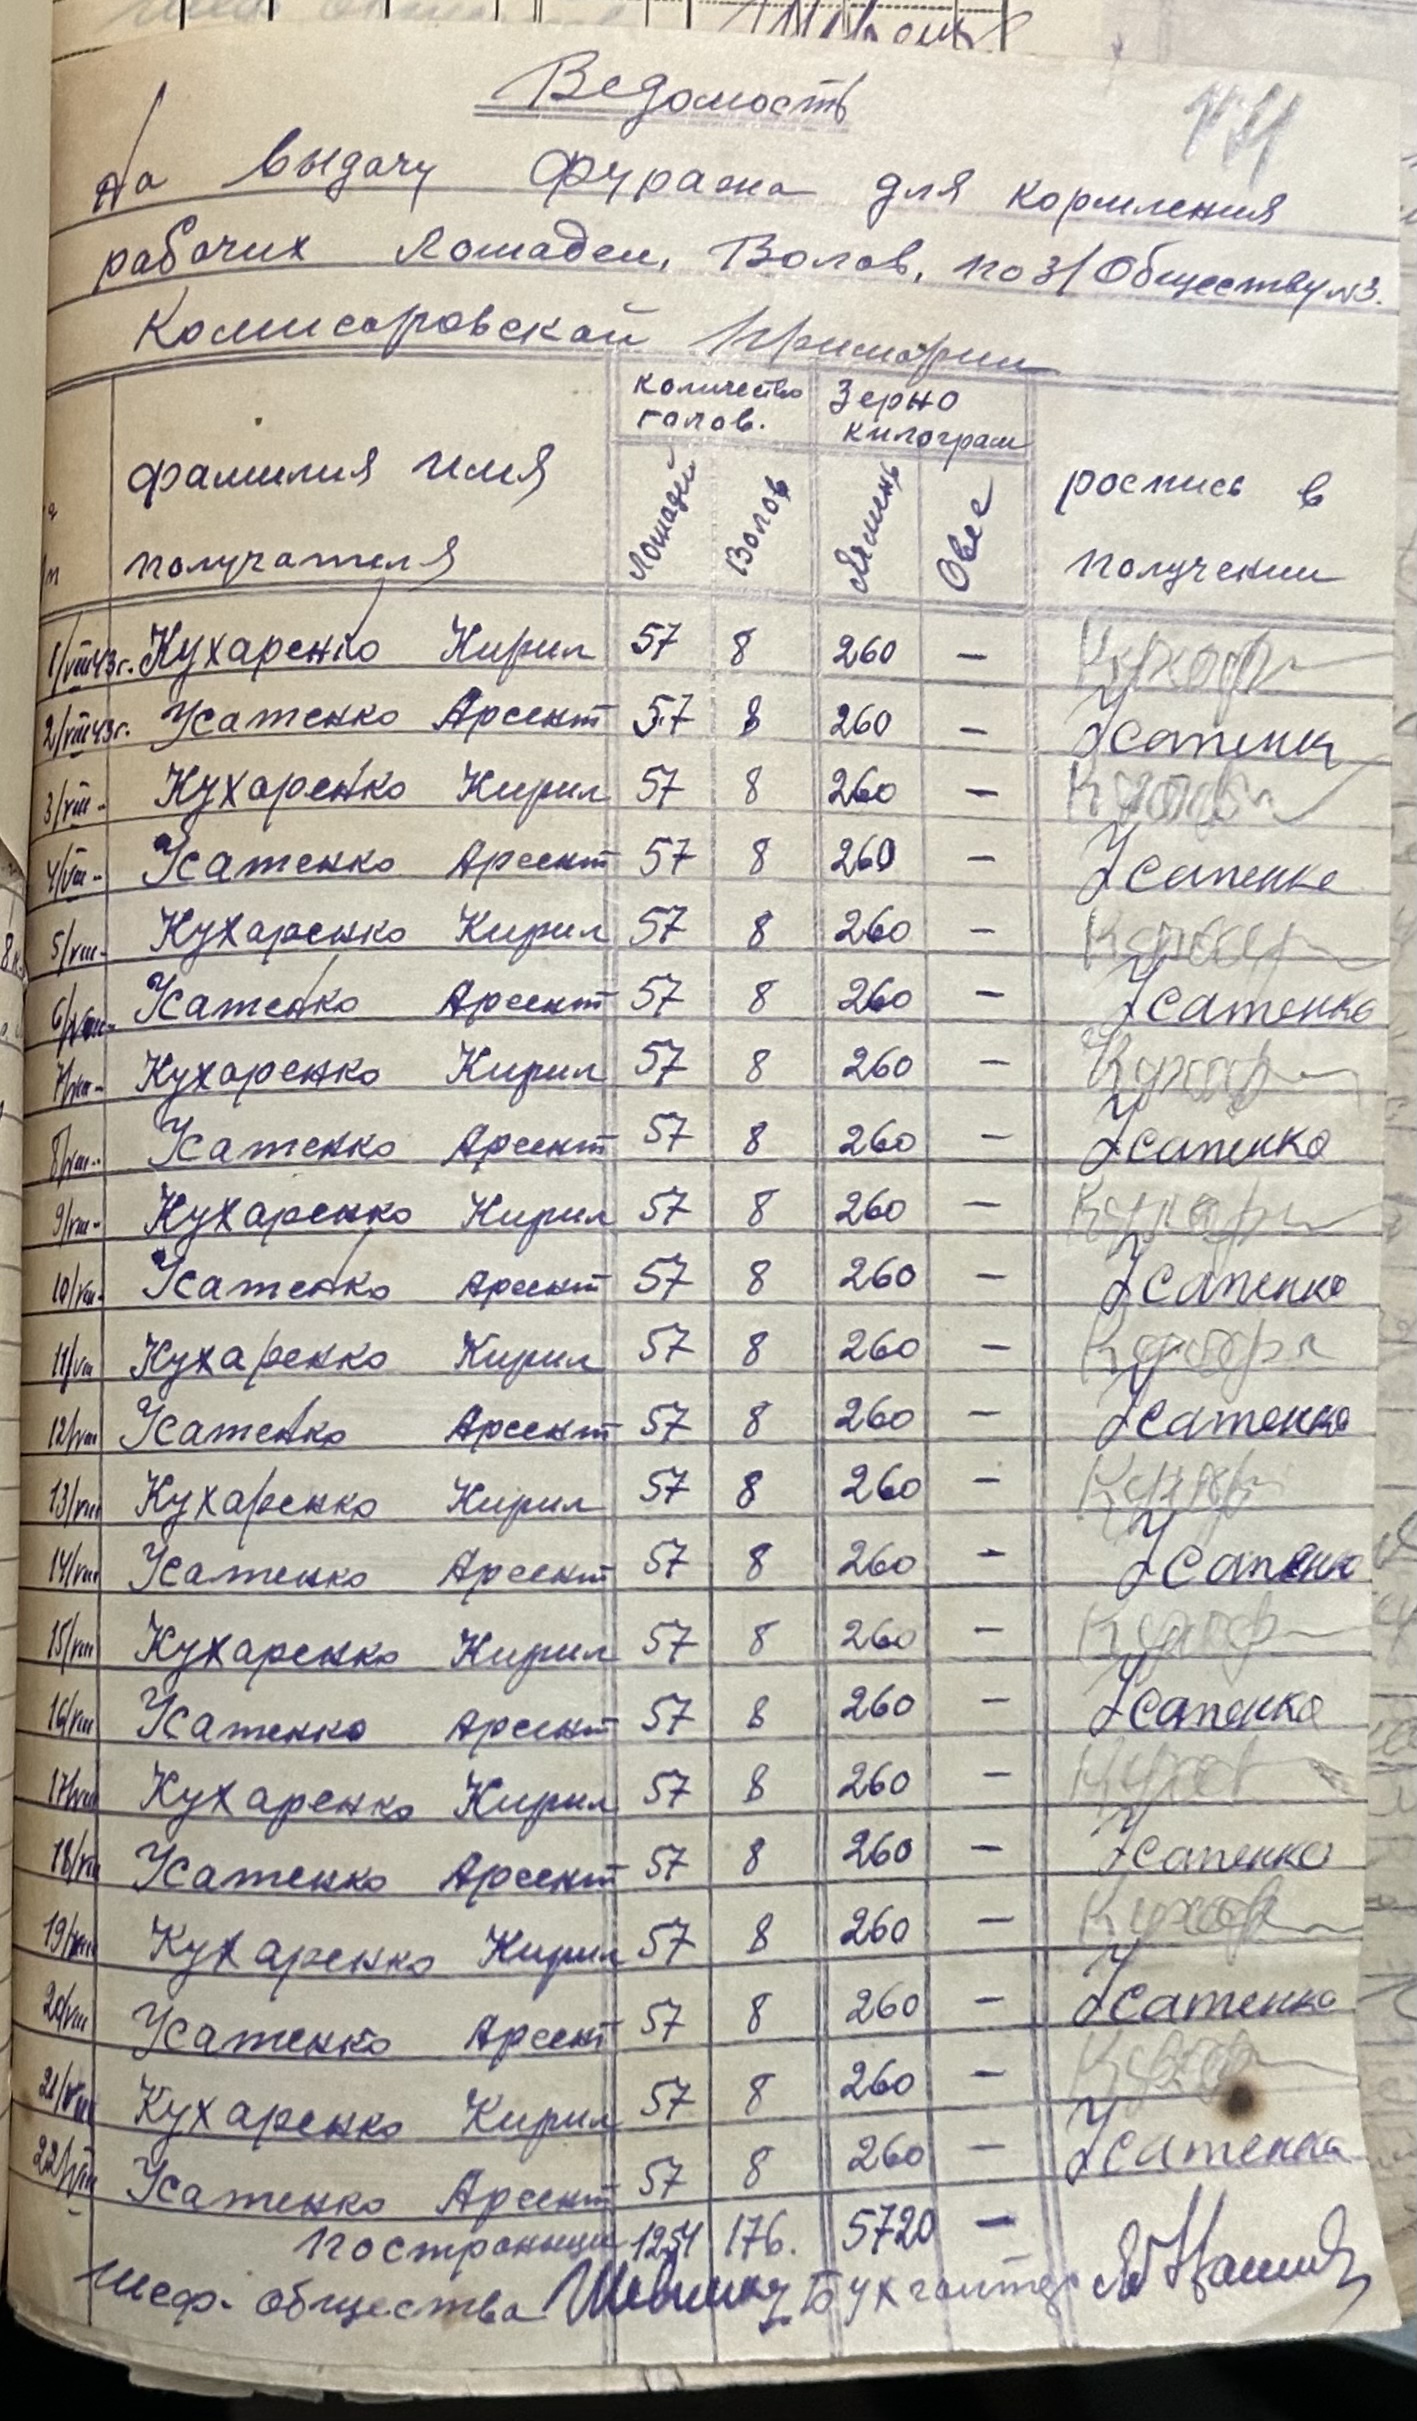 Ведомость
На выдачу фуража для кормления
рабочих лошадей, Волов, по з/Обществу №3.
Комисаровской Примарии
фамилия имя получателя
количество голов.
Зерно килограм
Лошадей
Волов
Ячмень
Овес
роспись в получении
1/VIII43г. Кухаренко Кирил 57 8 260 — Кухар
2/VIII43г. Усатенко Арсент 57 8 260 — Усатенк
3/VIII- Кухаренко Кирил 57 8 260 —
4/VIII- Усатенко Арсент 57 8 260 — Усатенко
5/VIII- Кухаренко Кирил 57 8 260 —
6/VIII- Усатенко Арсент 57 8 260 — Усатенко
7/VIII- Кухаренко Кирил 57 8 260 — Кухар
8/VIII- Усатенко Арсент 57 8 260 — Усатенко
9/VIII- Кухаренко Кирил 57 8 260 — Кухар
10/VIII- Усатенко Арсент 57 8 260 — Усатенко
11/VIII Кухаренко Кирил 57 8 260 —
12/VIII Усатенко Арсент 57 8 260 — Усатенко
13/VIII Кухаренко Кирил 57 8 260 — Кухар
14/VIII Усатенко Арсент 57 8 260 — Усатенко
15/VIII Кухаренко Кирил 57 8 260 —
16/VIII Усатенко Арсент 57 8 260 — Усатенко
17/VIII Кухаренко Кирил 57 8 260 — Кухар
18/VIII Усатенко Арсент 57 8 260 — Усатенко
19/VIII Кухаренко Кирил 57 8 260 — Кухар
20/VIII Усатенко Арсент 57 8 260 — Усатенко
21/VIII Кухаренко Кирил 57 8 260 — Кухар
22/VIII Усатенко Арсент 57 8 260 — Усатенко
По странице 1254 176. 5720 —
Шеф. общества Бухгалтер